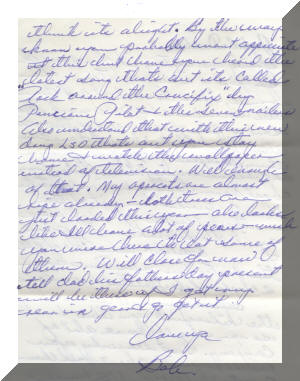 think its alright. By the way
I know you probably won't appreciate
this but have you heard the
latest song that's out its called
"Rock around the Crucifix" by
Pilot & the nailers
Also understand that with this new
drug LSD that's out you stay
home & watch the wallpaper
instead of television. Well enough
of that. My apricots are almost
ripe already — both trees are
just loaded this year — also looks
like I'll have a lot of pears — wish
you were here to eat some of
them. Will close for now
tell dad his fathers day present
will be there if I
year go get it.
Love ya